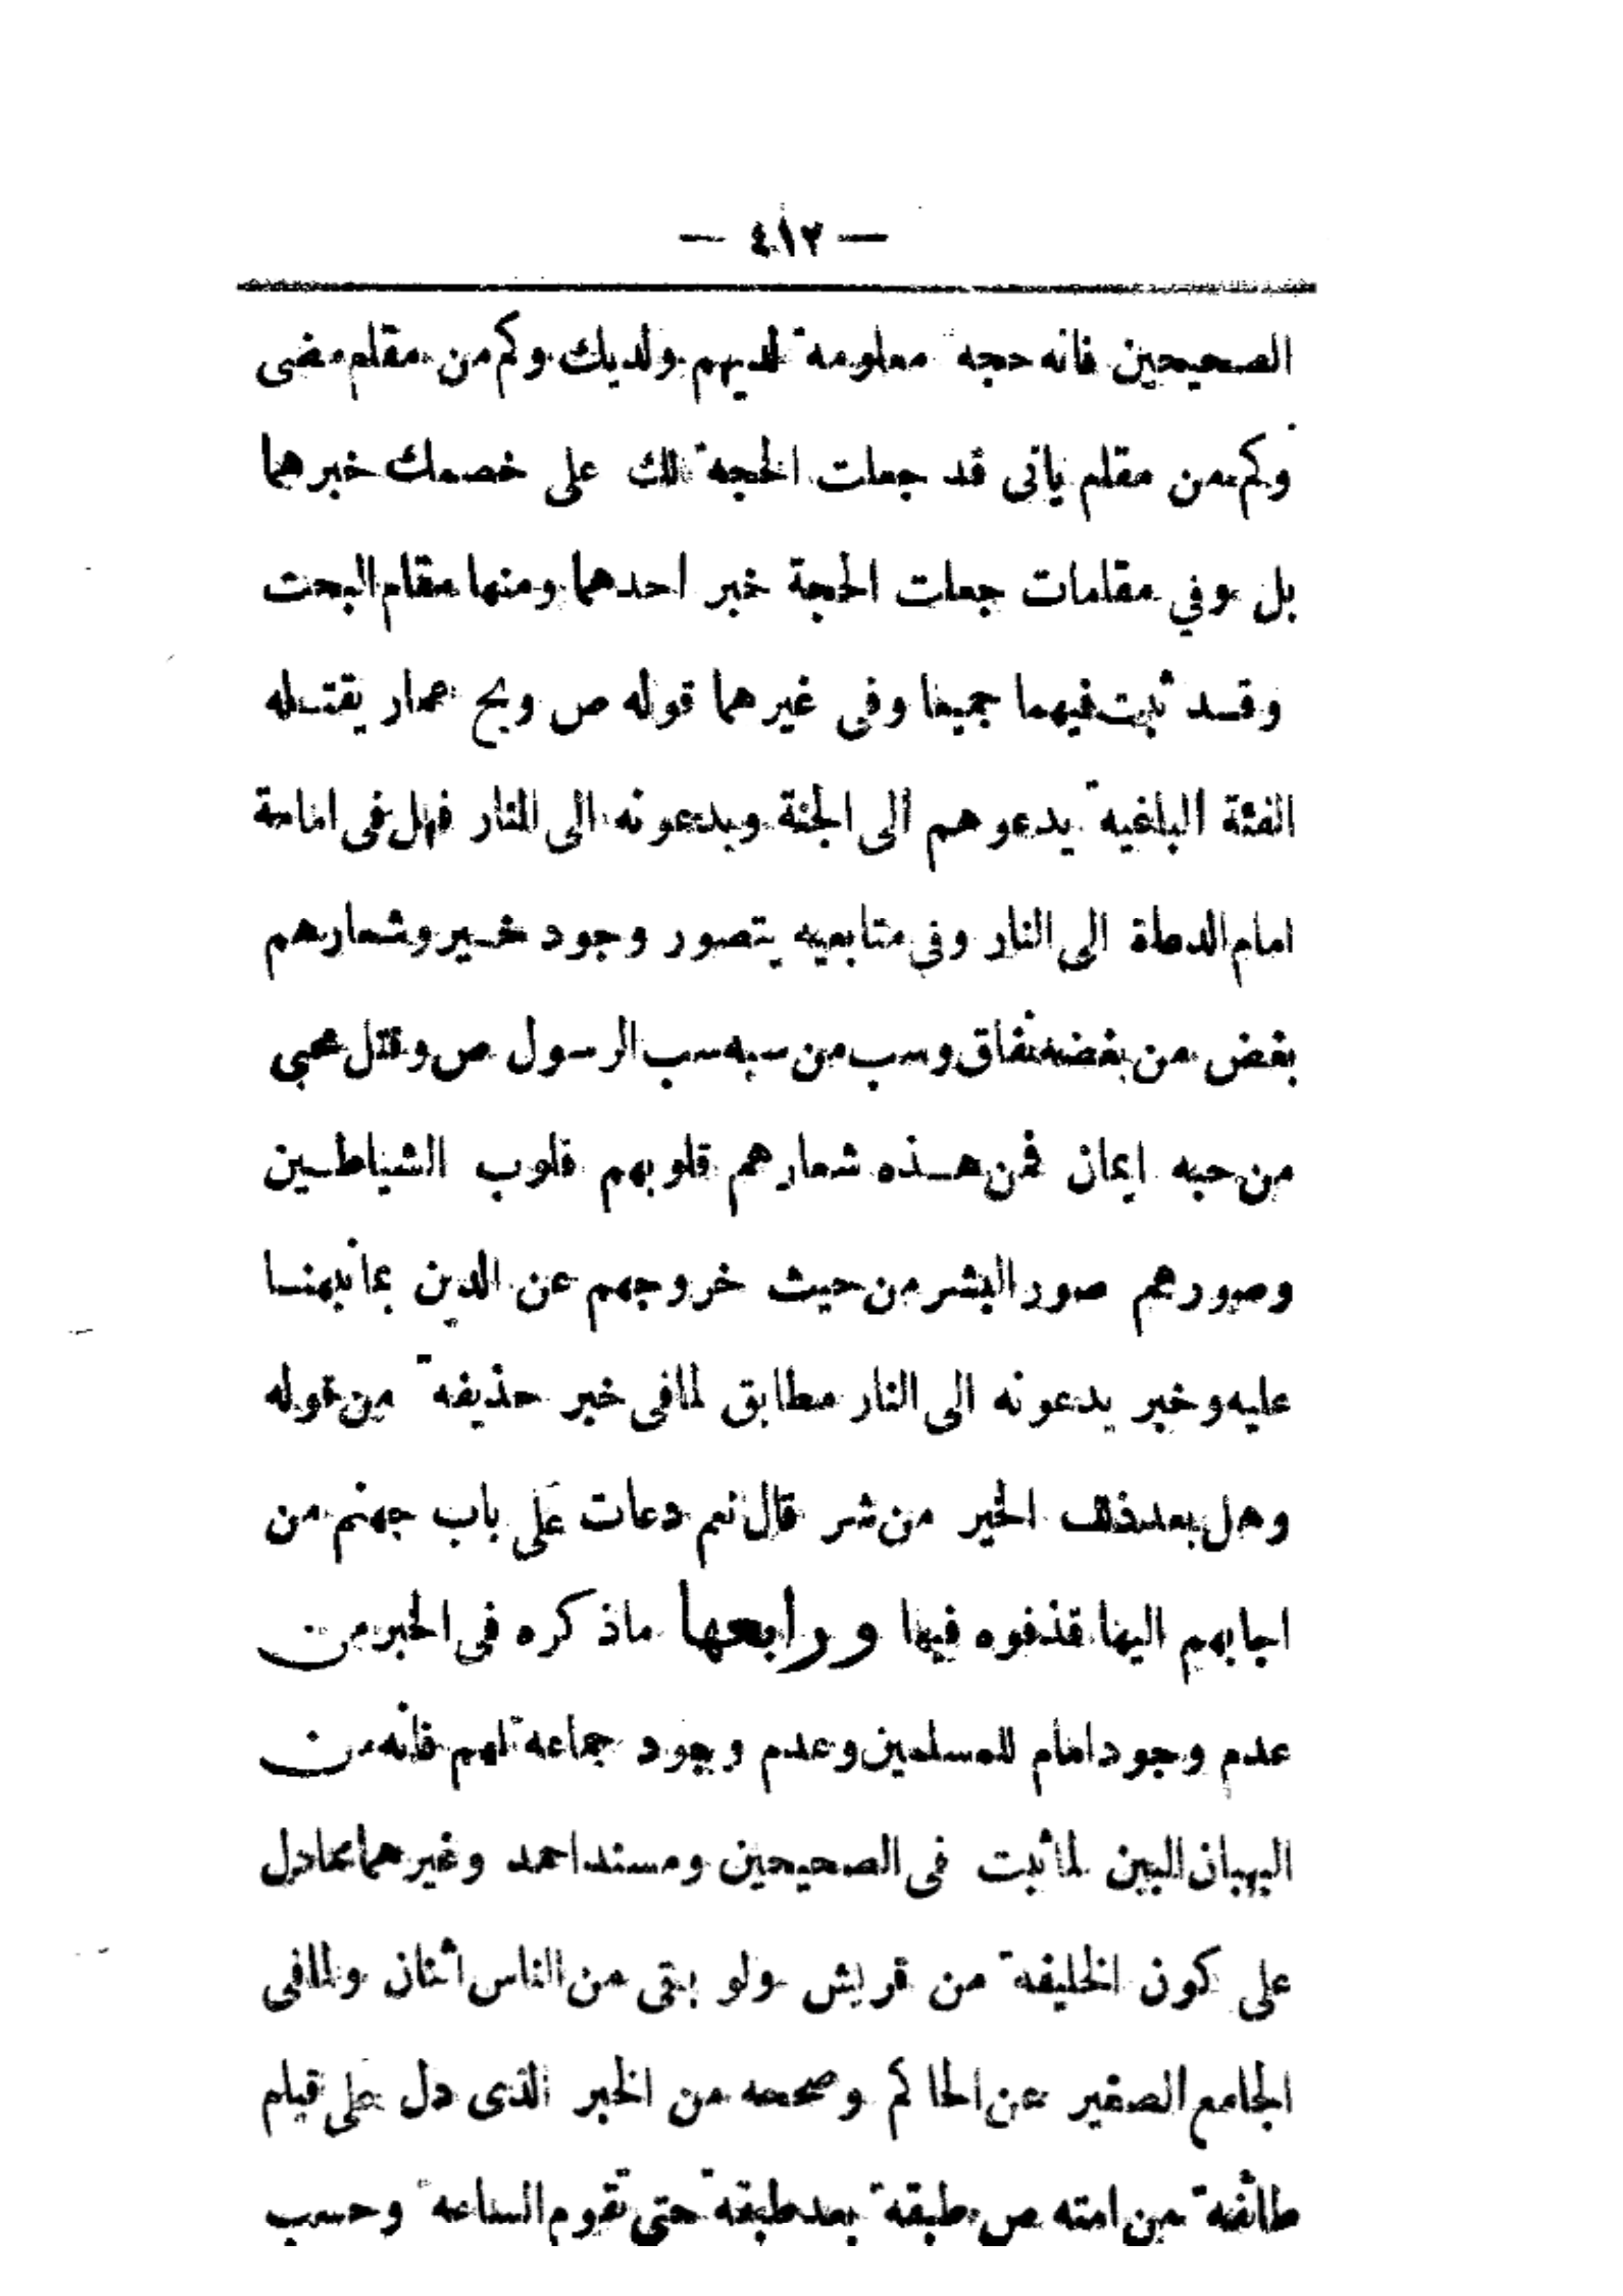 — ٤١٢ —
الصحيحين فانه حجة معلومة لديهم ولديك وكم من مقام مضى
وكم من مقام ياتى قد جعلت الحجة لك على خصمك خبرهما
بل وفي مقامات جعلت الحجة خبر احدهما ومنها مقام البحث
وقد ثبت فيهما جميعا وفى غيرهما قوله ص ويح عمار يقتله
الفئة الباغية يدعوهم الى الجنة ويدعونه الى النار فهل فى امامة
امام الدعاة الى النار وفى متابعيه يتصور وجود خير وشعارهم
بغض من بغضه نفاق وسب من سبه سب الرسول ص وقتل محبى
من حبه ايمان فمن هذه شعارهم قلوبهم قلوب الشياطين
وصورهم صور البشر من حيث خروجهم عن الدين بما نبهنا
عليه وخبر يدعونه الى النار مطابق لما فى خبر حذيفة من قوله
وهل بعد ذلك الخير من شر قال نعم دعات على باب جهنم من
اجابهم اليها قذفوه فيها ورابعها ماذكره فى الخبر من
عدم وجود امام للمسلمين وعدم وجود جماعة لهم فانه من
البهتان البين لما ثبت فى الصحيحين ومسند احمد وغيرهما مما دل
على كون الخليفة من قريش ولو بقى من الناس اثنان ولما فى
الجامع الصغير عن الحاكم وصححه من الخبر الذى دل على قيام
طائفة من امته ص طبقة بعد طبقة حتى تقوم الساعة وحسب